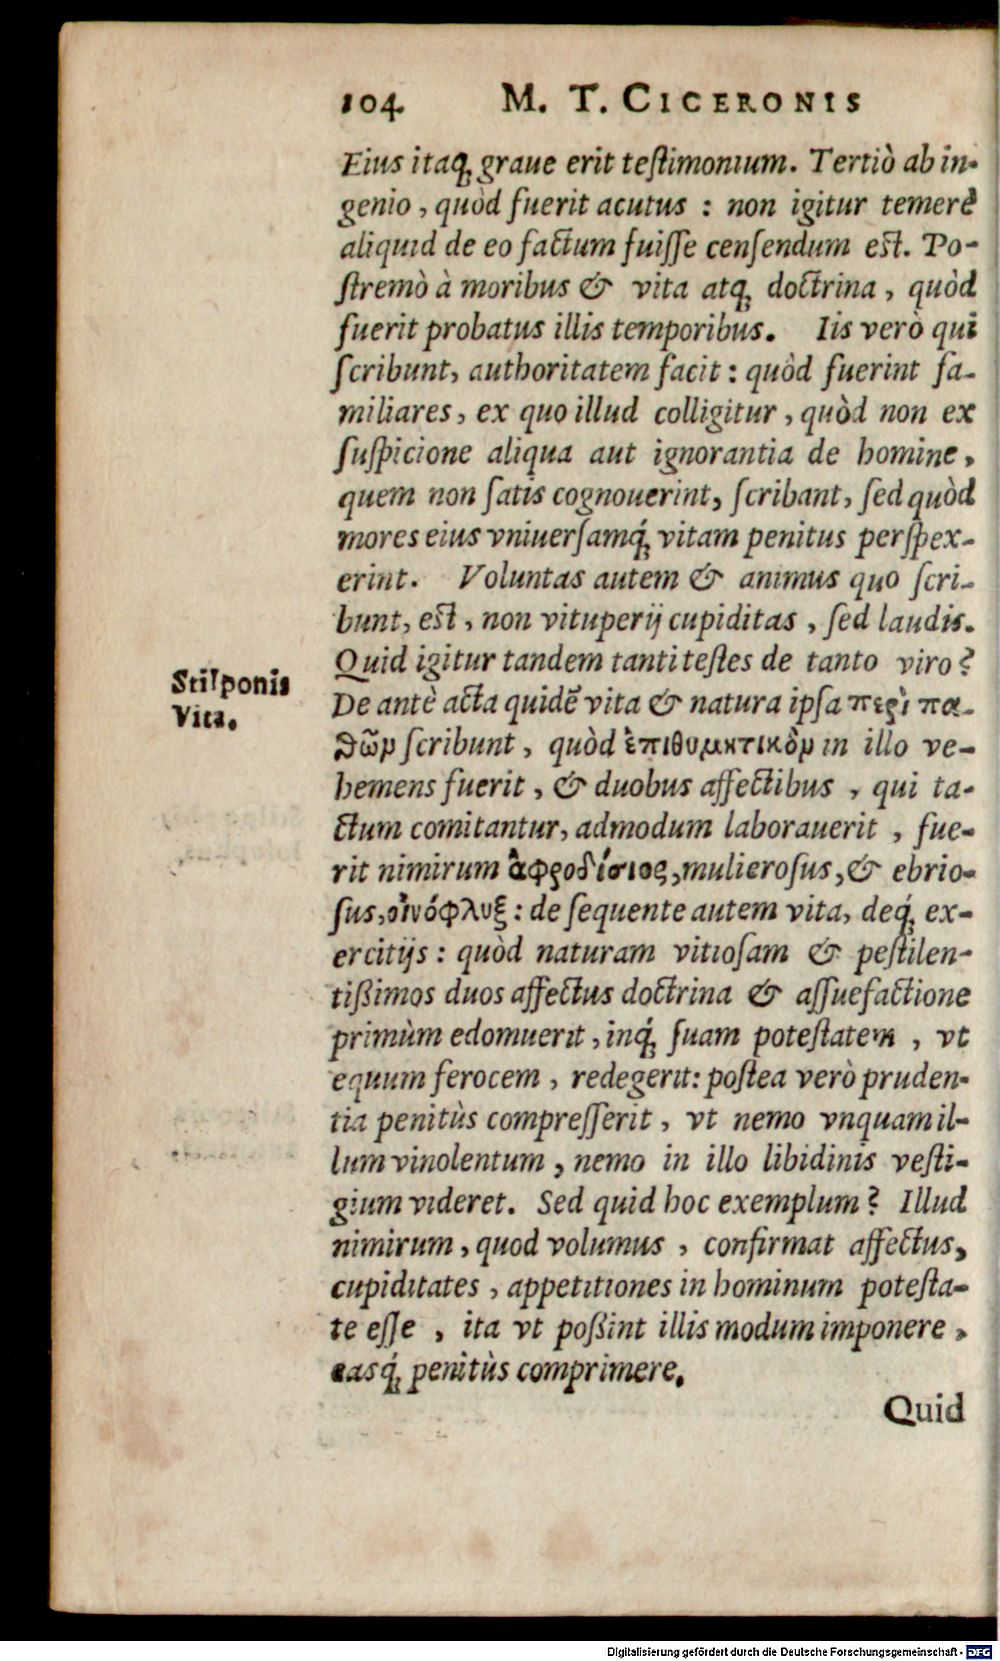 104 M. T. CICERONIS
Eius itaq; graue erit teſtimonium. Tertiò ab in-
genio, quòd fuerit acutus : non igitur temerè
aliquid de eo factum fuiſſe cenſendum eſt. Po-
ſtremò à moribus & vita atq; doctrina, quòd
fuerit probatus illis temporibus. Iis verò qui
ſcribunt, authoritatem facit : quòd fuerint fa-
miliares, ex quo illud colligitur, quòd non ex
ſuſpicione aliqua aut ignorantia de homine,
quem non ſatis cognouerint, ſcribant, ſed quòd
mores eius vniuerſamq́; vitam penitus perſpex-
erint. Voluntas autem & animus quo ſcri-
bunt, eſt, non vituperij cupiditas, ſed laudis.
Quid igitur tandem tanti teſtes de tanto viro?
Stilponis
Vita.
De antè acta quidẽ vita & natura ipſa περὶ πα-
θῶν ſcribunt, quòd ἐπιθυμητικὸν in illo ve-
hemens fuerit, & duobus affectibus, qui ta-
ctum comitantur, admodum laborauerit, fue-
rit nimirum ἀφροδίσιος, mulieroſus, & ebrio-
ſus, οἰνόφλυξ : de ſequente autem vita, deq́; ex-
ercitijs : quòd naturam vitioſam & peſtilen-
tißimos duos affectus doctrina & aſſuefactione
primùm edomuerit, inq́; ſuam poteſtatem, vt
equum ferocem, redegerit: poſtea verò pruden-
tia penitùs compreſſerit, vt nemo vnquam il-
lum vinolentum, nemo in illo libidinis veſti-
gium videret. Sed quid hoc exemplum? Illud
nimirum, quod volumus, confirmat affectus,
cupiditates, appetitiones in hominum poteſta-
te eſſe, ita vt poßint illis modum imponere,
easq́; penitùs comprimere.
Quid
Digitalisierung gefördert durch die Deutsche Forschungsgemeinschaft - DFG